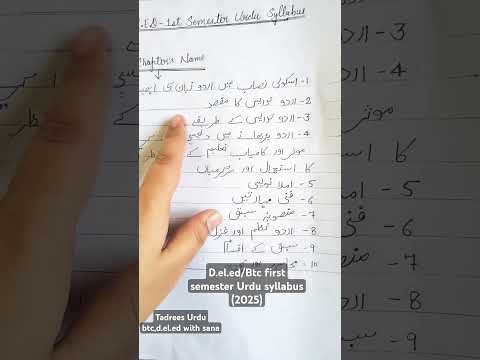 .ED-1st Semester Urdu Syllabus
Chapters Name
1- اسکولی نصاب میں اردو زبان کی اہمی
2- اردو نویسی کا مقصد
3- اردو نویسی کے طریقے
4- اردو پڑھانے میں دلچسپی
موثر اور کامیاب تعلیم کے
کا استعمال اور سرگرمیاں
5- املا نویسی
6- فنی مہارتیں
7- منصوبۂ سبق
8- اردو نظم اور غزل
9- سبق کے
10-
D.el.ed/Btc first
semester Urdu syllabus
(2025)
Tadrees Urdu
btc,d.el.ed with sana